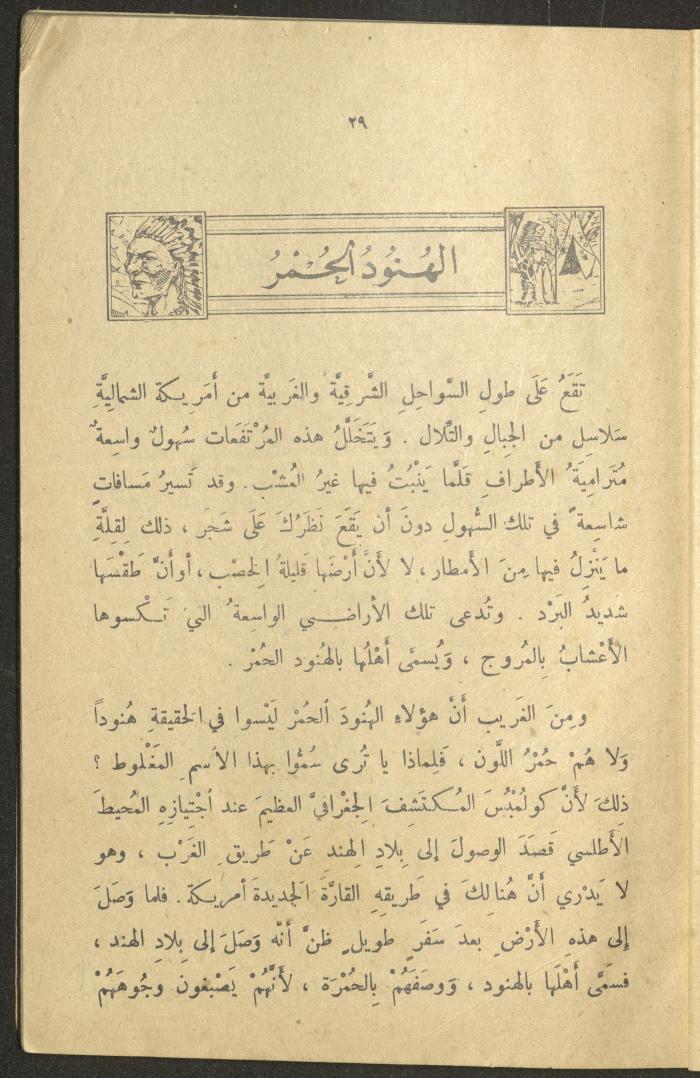 ٢٩
الهُنُودُ الحُمْرُ
تَقَعُ عَلَى طولِ السَّواحِلِ الشَّرقِيَّة والغَربيَّة من أَمَريكة الشماليَّةِ
سَلاسِل من الجِبالِ والتِّلال . وَيَتَخَلَّلُ هذه المرْتَفَعات سُهولٌ واسِعةٌ
مُتَرامِيَةُ الأَطرافِ قَلَّما يَنْبُتُ فيها غيرُ العُشْب. وقد تَسيرُ مَسافاتٍ
شاسِعةً في تلك السُّهولِ دونَ أن يَقَعَ نَظَرُكَ عَلَى شَجَر ، ذلك لِقلَّةِ
ما يَنْزِلُ فيها مِنَ الأَمطار، لا لأَنَّ أَرْضَها قَليلةُ الخِصْب، أو أَنَّ طَقْسَها
شديدُ البَرْد . وتُدعى تلك الأراضي الواسِعةُ التي تَكْسوها
الأَعْشابُ بِالمُروج ، وَيُسمَّى أَهْلُها بالهُنود الحُمْر .
ومِنَ الغَريب أَنَّ هؤلاءِ الهُنودَ الحُمْرَ لَيْسوا في الحَقيقةِ هُنوداً
وَلا هُمْ حُمْرُ اللَّون ، فَلِماذا يا تُرى سُمُّوا بهذا الاسم المَغْلوط ؟
ذلِكَ لأَنَّ كولُمْبُسَ المُكتَشِفَ الجغْرافيَّ العظيمَ عند اجْتِيازِهِ المُحيطَ
الأَطلسي قَصَدَ الوصولَ إلى بِلادِ الهِند عَنْ طَريق الغَرْب ، وهو
لا يَدْري أَنَّ هُنالِكَ في طَريقِهِ القارَّةَ الجَديدةَ أمريكة. فلما وَصَلَ
إلى هذهِ الأَرْضِ بعدَ سَفَرٍ طويلٍ ظنَّ أَنَّه وَصَلَ إلى بِلادِ الهند ،
فسَمَّى أَهْلَها بالهنود ، وَوصَفَهُمْ بِالحُمْرَة ، لأَنَّهُمْ يَصْبِغونَ وجُوهَهُمْ